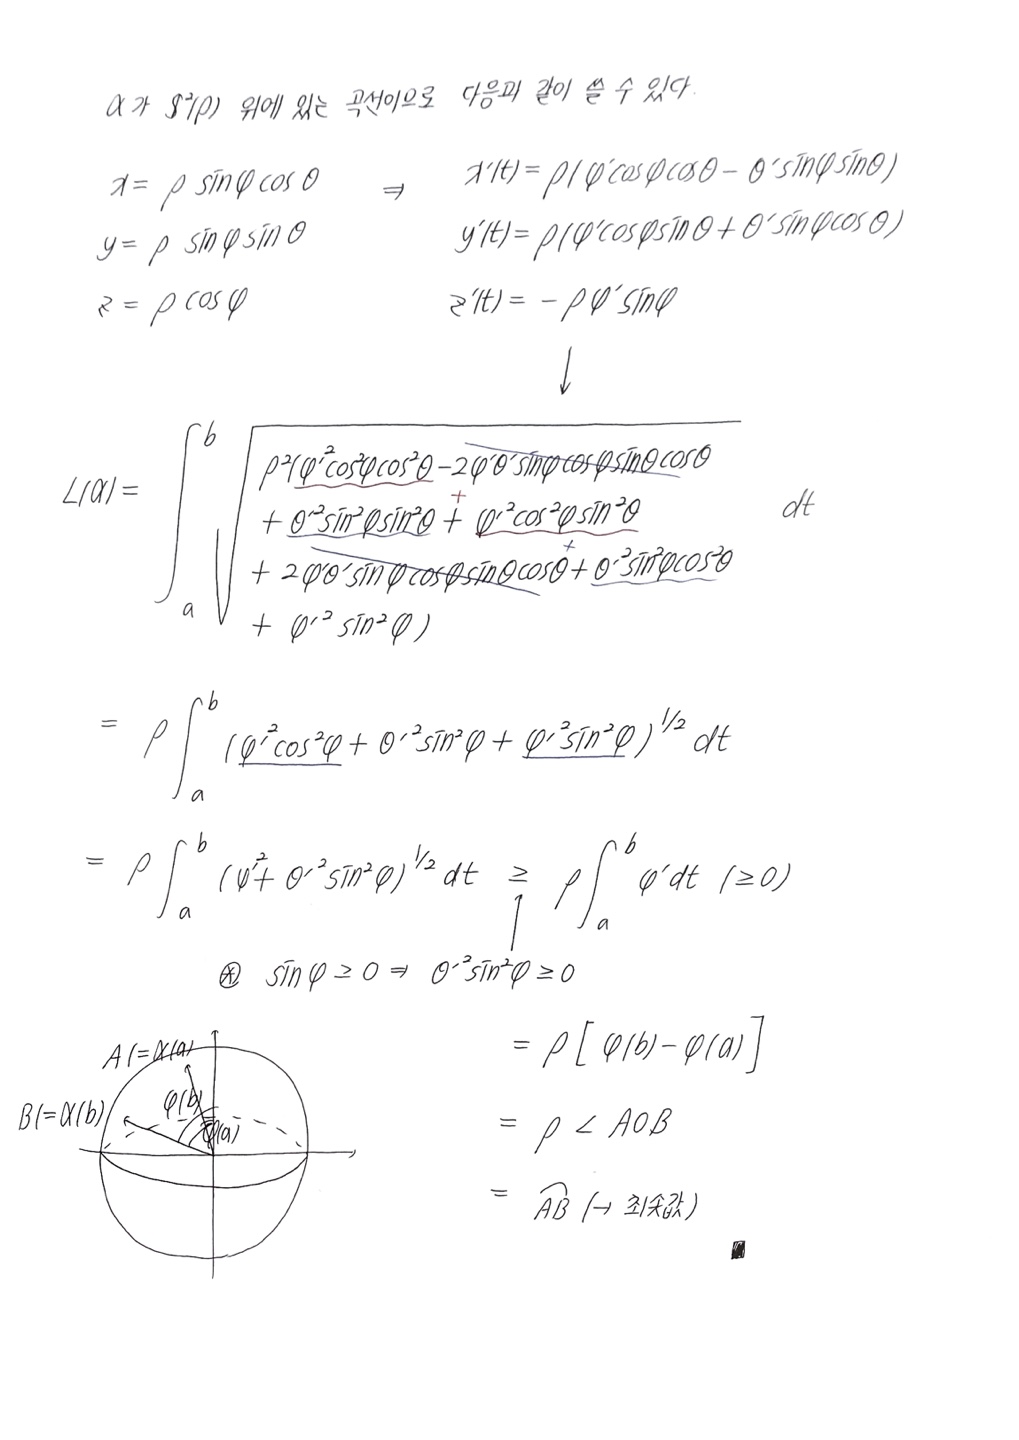 α가 S²(ρ) 위에 있는 곡선이므로 다음과 같이 쓸 수 있다.
x = ρ sinφ cosθ ⇒ x'(t) = ρ(φ'cosφcosθ - θ'sinφsinθ)
y = ρ sinφ sinθ y'(t) = ρ(φ'cosφsinθ + θ'sinφcosθ)
z = ρ cosφ z'(t) = -ρφ'sinφ
↓
L(α) = ∫_a^b √ρ²(φ'²cos²φcos²θ - 2φ'θ'sinφcosφsinθcosθ
+ θ'²sin²φsin²θ + φ'²cos²φsin²θ dt
+ 2φ'θ'sinφcosφsinθcosθ + θ'²sin²φcos²θ
+ φ'²sin²φ)
= ρ∫_a^b (φ'²cos²φ + θ'²sin²φ + φ'²sin²φ)^1/2 dt
= ρ∫_a^b (φ'² + θ'²sin²φ)^1/2 dt ≥ ρ∫_a^b φ'dt (≥0)
⊛ sinφ ≥ 0 ⇒ θ'²sin²φ ≥ 0
= ρ[φ(b) - φ(a)]
= ρ∠AOB
= AB (→ 최솟값)
A(=α(a)
B(=α(b)
φ(b)
φ(a)